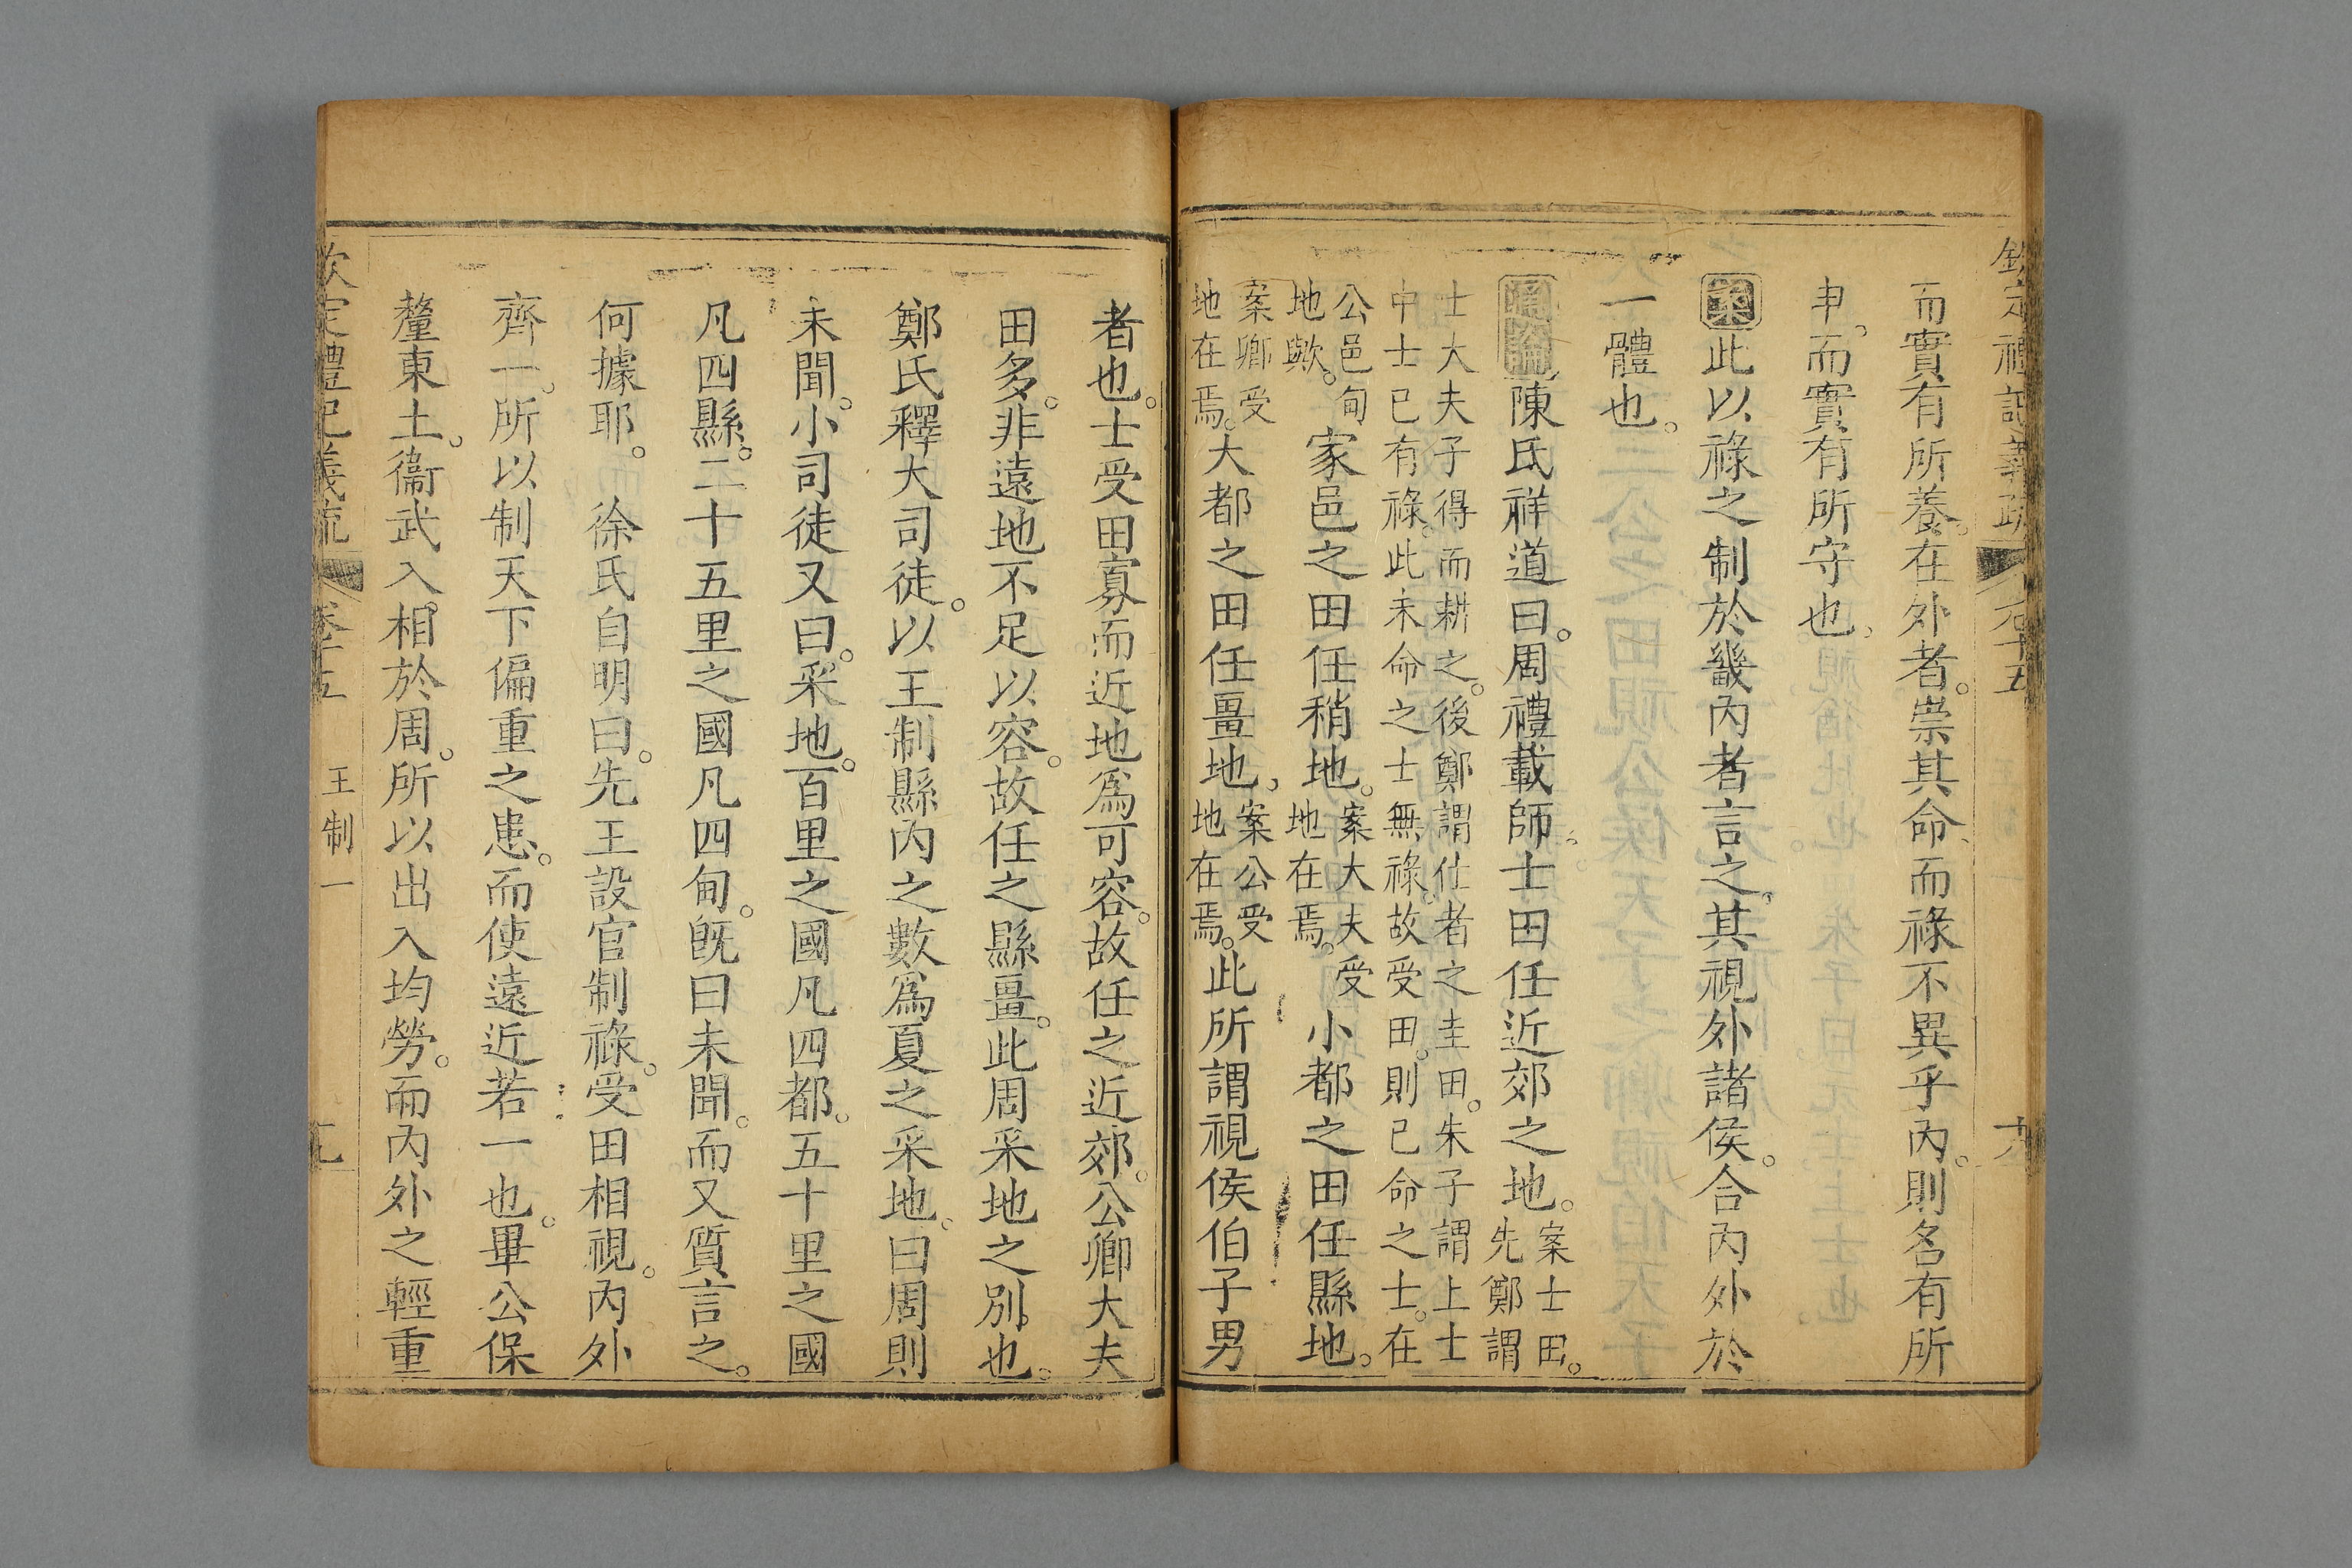 而實有所養。在外者。崇其命、而祿不異乎內。則名有所
申。而實有所守也。
案此以祿之制於畿內者言之。其視外諸侯。合內外於
一體也。
通論陳氏祥道曰。周禮載師。士田任近郊之地。案士田。
先鄭謂
士大夫子得而耕之。後鄭謂仕者之圭田。朱子謂上士
中士已有祿。此未命之士無祿。故受田。則已命之士。在
公邑甸
地歟。家邑之田任稍地。案大夫受
地在焉。小都之田任縣地。
案卿受
地在焉。大都之田任畺地、案公受
地在焉。此所謂視侯伯子男
欽定禮記義疏 卷十五 十九
者也。士受田寡而近地爲可容。故任之近郊。公卿大夫
田多。非遠地不足以容。故任之縣畺。此周采地之別也。
鄭氏釋大司徒。以王制縣內之數爲夏之采地。曰周則
未聞。小司徒又曰。采地。百里之國凡四都。五十里之國
凡四縣。二十五里之國凡四甸。旣曰未聞。而又質言之。
何據耶。 徐氏自明曰。先王設官制祿。受田相視。內外
齊一。所以制天下偏重之患。而使遠近若一也。畢公保
釐東土。衞武入相於周。所以出入均勞。而內外之輕重
欽定禮記義疏 卷十五 王制一